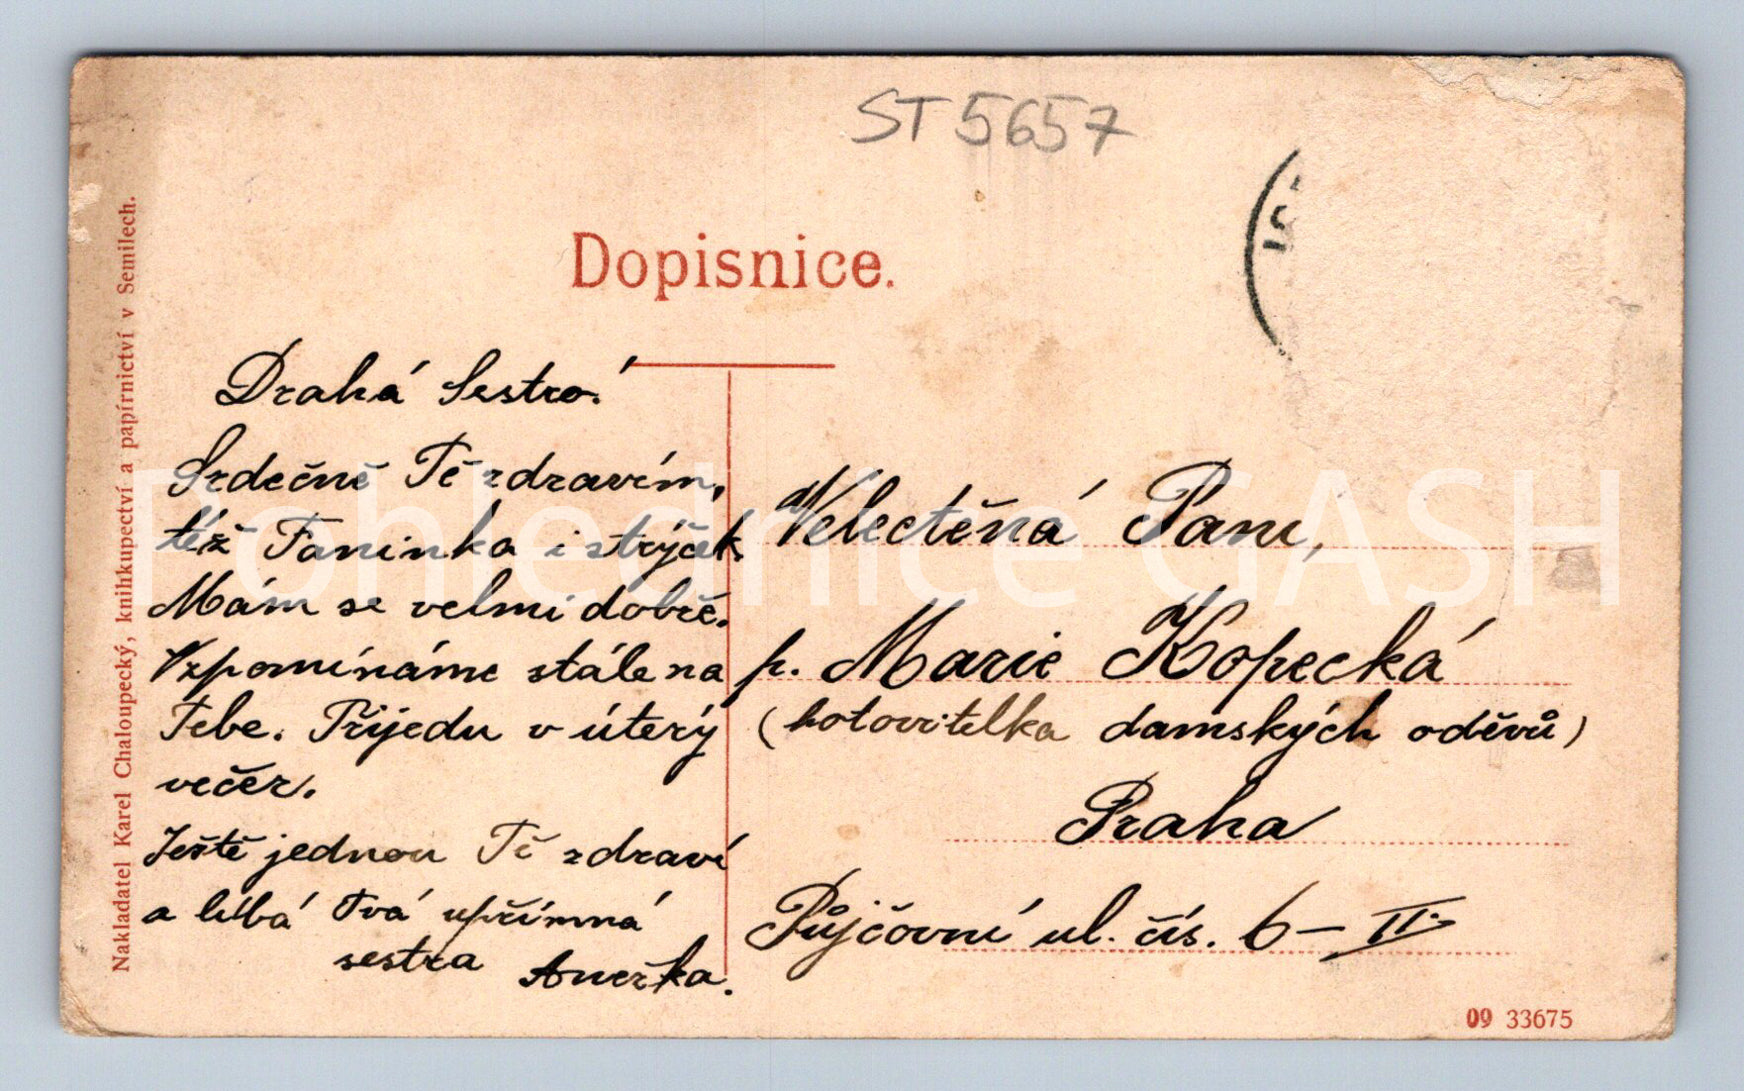 ST 5657
Dopisnice.
Drahá Sestro!
Srdečně Tě zdravím,
též Taninka i strýček.
Mám se velmi dobře.
Vzpomínáme stále na
Tebe. Přijedu v úterý
večer.
Ještě jednou Tě zdraví
a líbá Tvá upřímná
sestra Anežka.
Velectěná Paní,
p. Marie Kopecká
(hotovitelka damských oděvů)
Praha
Půjčovní ul. čís. 6 – II.
Nakladatel Karel Chaloupecký, knihkupectví a papírnictví v Semilech.
09 33675
Pohlednice GASH